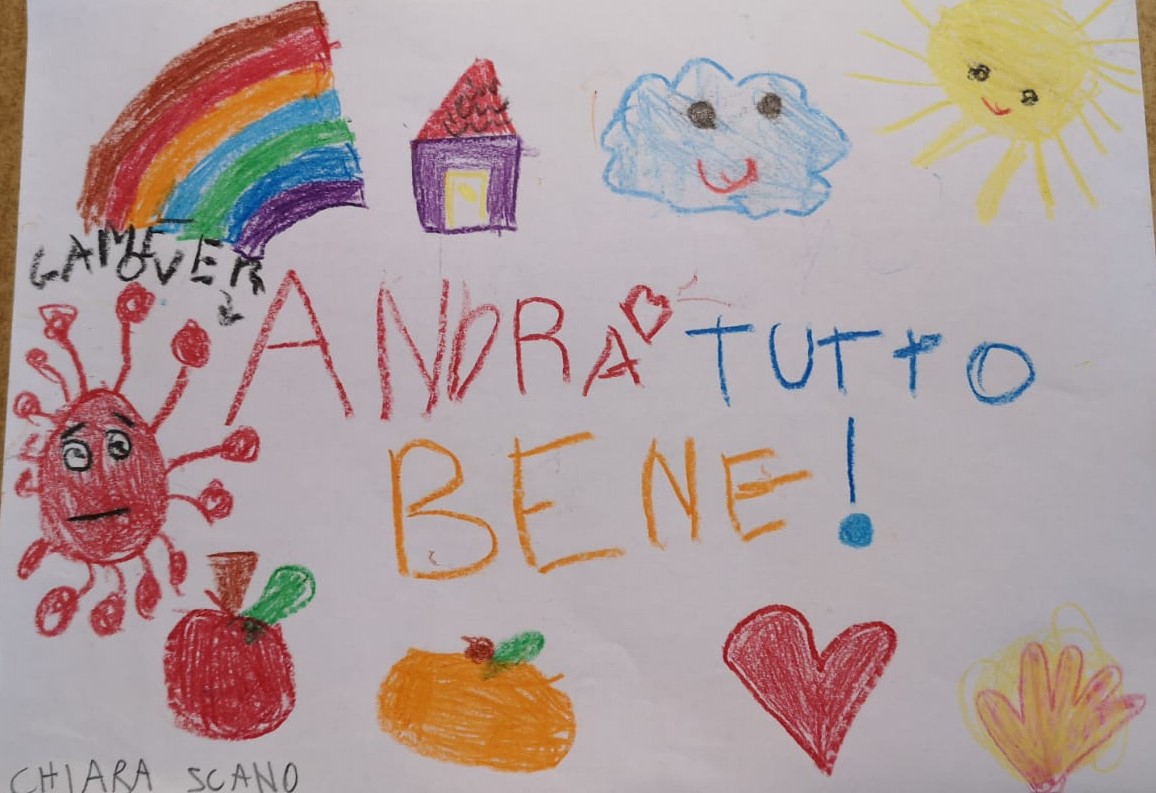 GAME
OVER
ANDRA TUTTO
BENE!
CHIARA SCANO